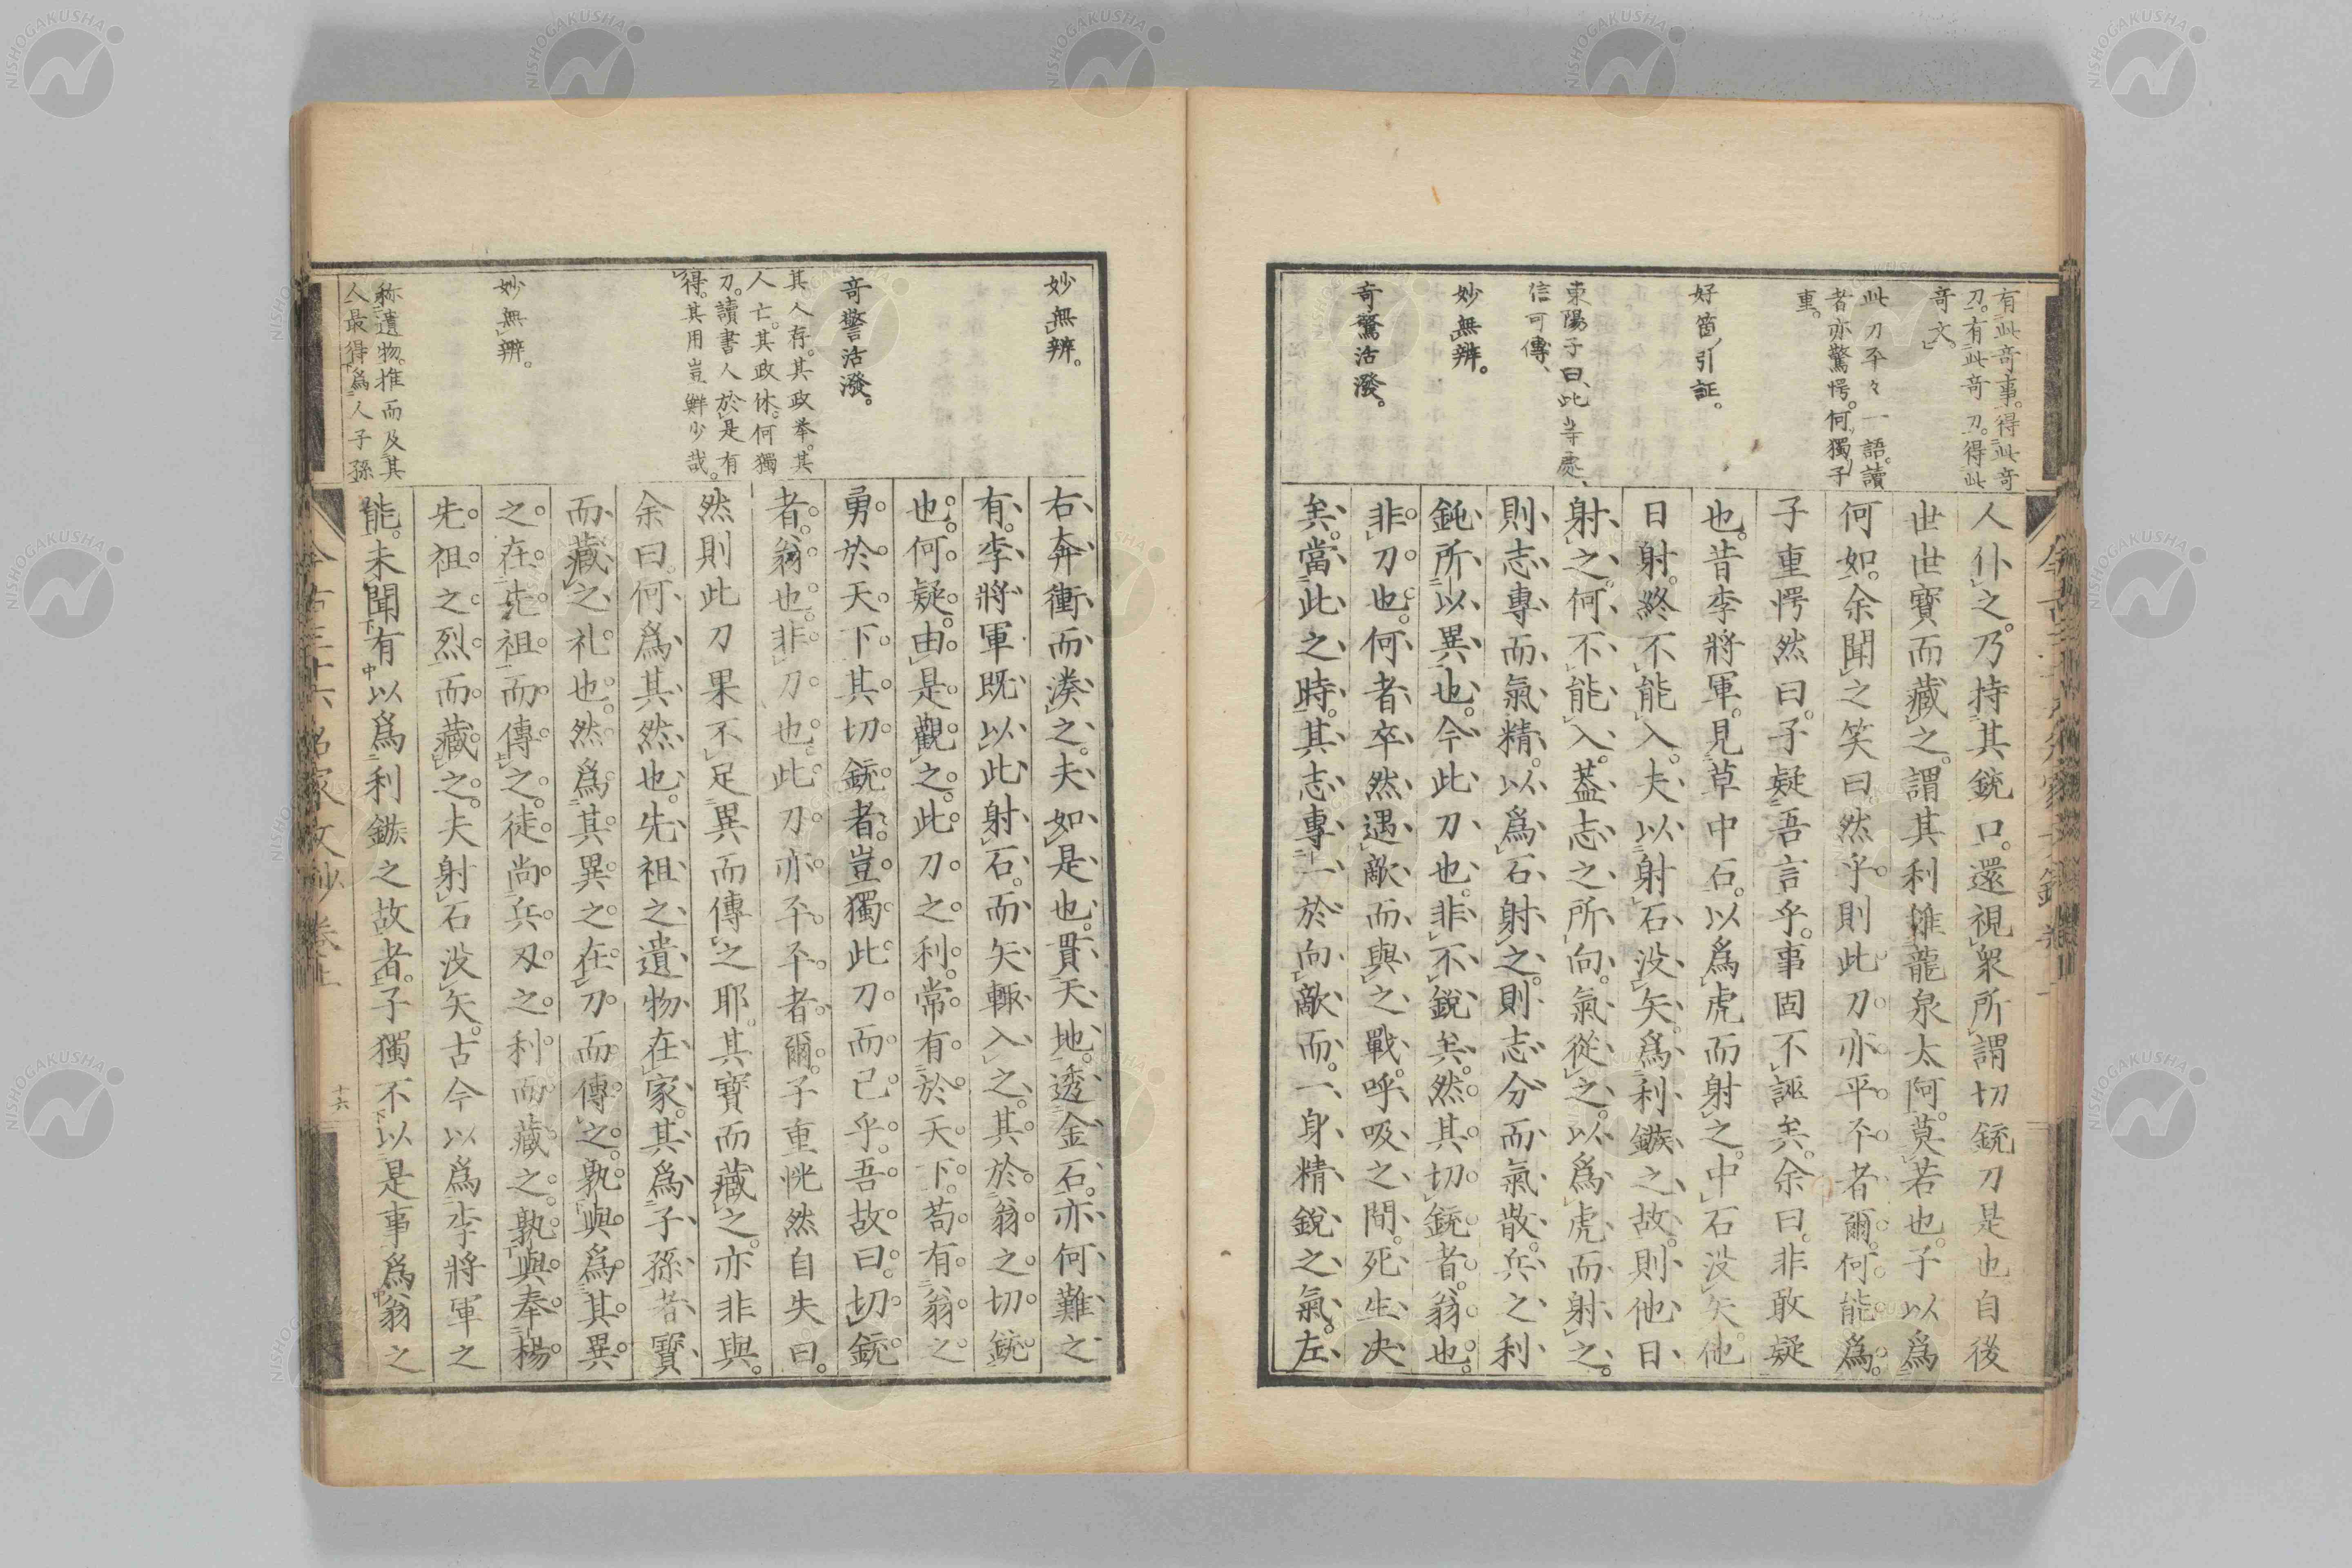 有此奇事。得此奇
刀。有此奇刀。得此
奇文。
此刀平々一語。讀
者亦驚愕。何獨子
重。
好箇引証。
東陽子曰、此等處、
信可傳、
妙無辨。
奇驚活潑。
人仆之。乃持其銃口。還視衆所謂切銃刀是也自後
世世寶而藏之。謂其利雖龍泉太阿。莫若也。子以爲
何如。余聞之笑曰然乎則此刀亦平平者爾。何能爲。
子重愕然曰。子疑吾言乎。事固不誣矣。余曰。非敢疑
也。昔李將軍。見草中石。以爲虎而射之。中石没矢。他
日射。終不能入。夫以射石没矢。爲利鏃之故。則他日
射之。何不能入。蓋志之所向。氣從之。以爲虎而射之。
則志專而氣精。以爲石射之。則志分而氣散。兵之利
鈍所以異也。今此刀也。非不銳矣。然其切銃者。翁也。
非刀也。何者卒然遇敵而與之戰。呼吸之間。死生决
矣。當此之時。其志專一於向敵而。一身精銳之氣。左
妙無辨。
奇警活潑。
其人存。其政举。其
人亡。其政休。何獨
刀。讀書人於是有
得。其用豈鮮少哉。
妙無辨。
称遺物。推而及其
人最得爲人子孫
右奔衝而湊之。夫如是也。貫天地。透金石。亦何難之
有。李將軍既以此射石。而矢輙入之。其於翁之切銃
也。何疑。由是觀之。此刀之利。常有於天下。苟有翁之
勇於天下。其切銃者。豈獨此刀而已乎。吾故曰。切銃
者。翁也。非刀也。此刀亦平平者爾。子重恍然自失曰。
然則此刀果不足異而傳之耶。其寶而藏之。亦非與。
余曰。何爲其然也。先祖之遺物在家。其爲子孫者寶
而藏之礼也。然爲其異之在刀而傳之。孰與爲其異
之在先祖而傳之。徒尚兵刃之利而藏之。孰與奉楊
先祖之烈。而藏之。夫射石没矢。古今以爲李將軍之
能。未聞有以爲利鏃之故者。子獨不以是事爲翁之
今古三十六名家文抄卷上
十六